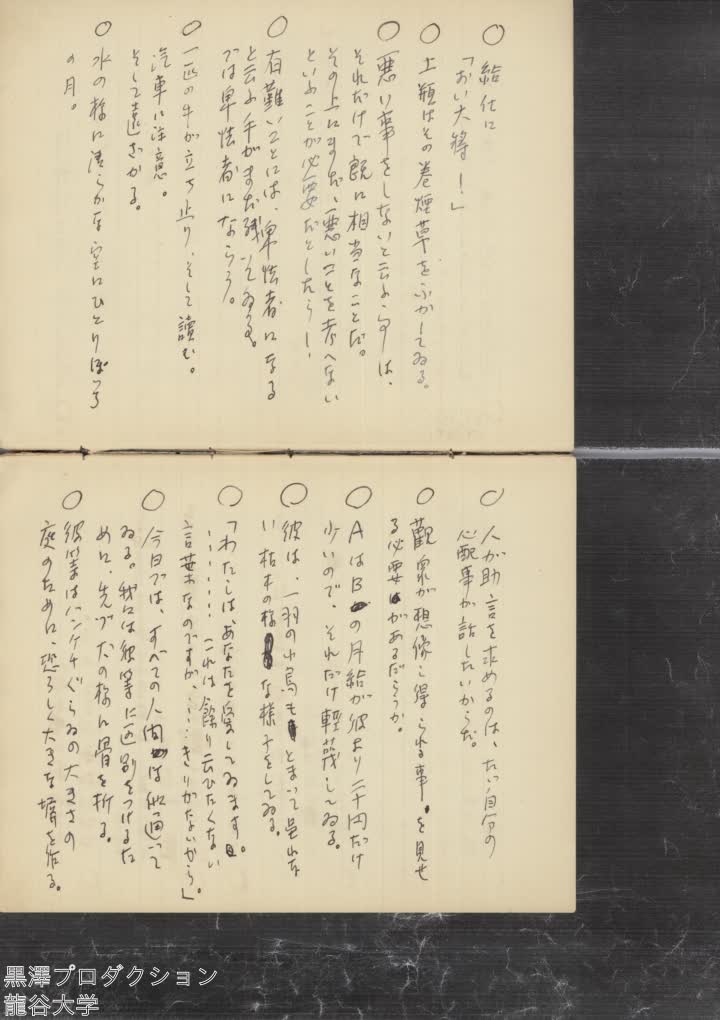 ○ 給仕に
「おい大将!」
○ 土瓶はその巻煙草をふかしてゐる。
○ 悪い事をしないと云ふ事は、
それだけで既に相当なことだ。
その上にまだ、悪いことを考へない
といふことが必要だとしたら!
○ 有難いことには、卑怯者になる
と云ふ手がまだ残つてゐる。
では卑怯者にならう。
○ 一匹の牛が立ち止り、そして読む。
汽車に注意。
そして遠ざかる。
○ 水の様に清らかな空にひとりぼつち
の月。
○ 人が助言を求めるのは、たゞ自分の
心配事が話したいからだ。
○ 観衆が想像し得られる事を見せ
る必要があるだらうか。
○ AはBの月給が彼より二千円だけ
少いので、それだけ軽蔑してゐる。
○ 彼は、一羽の小鳥もとまつて呉れな
い枯木の様な様子をしてゐる。
○ 「わたしはあなたを愛してゐます。
………これは余り云ひたくない
言葉なのですが、……きりがないから」。
○ 今日では、すべての人間は似通つて
ゐる。我々は彼等に区別をつけるた
めに、先づ犬の様に骨を折る。
○ 彼等はハンケチぐらゐの大きさの
庭のために、恐ろしく大きな塀を作る。
黒澤プロダクション
龍谷大学